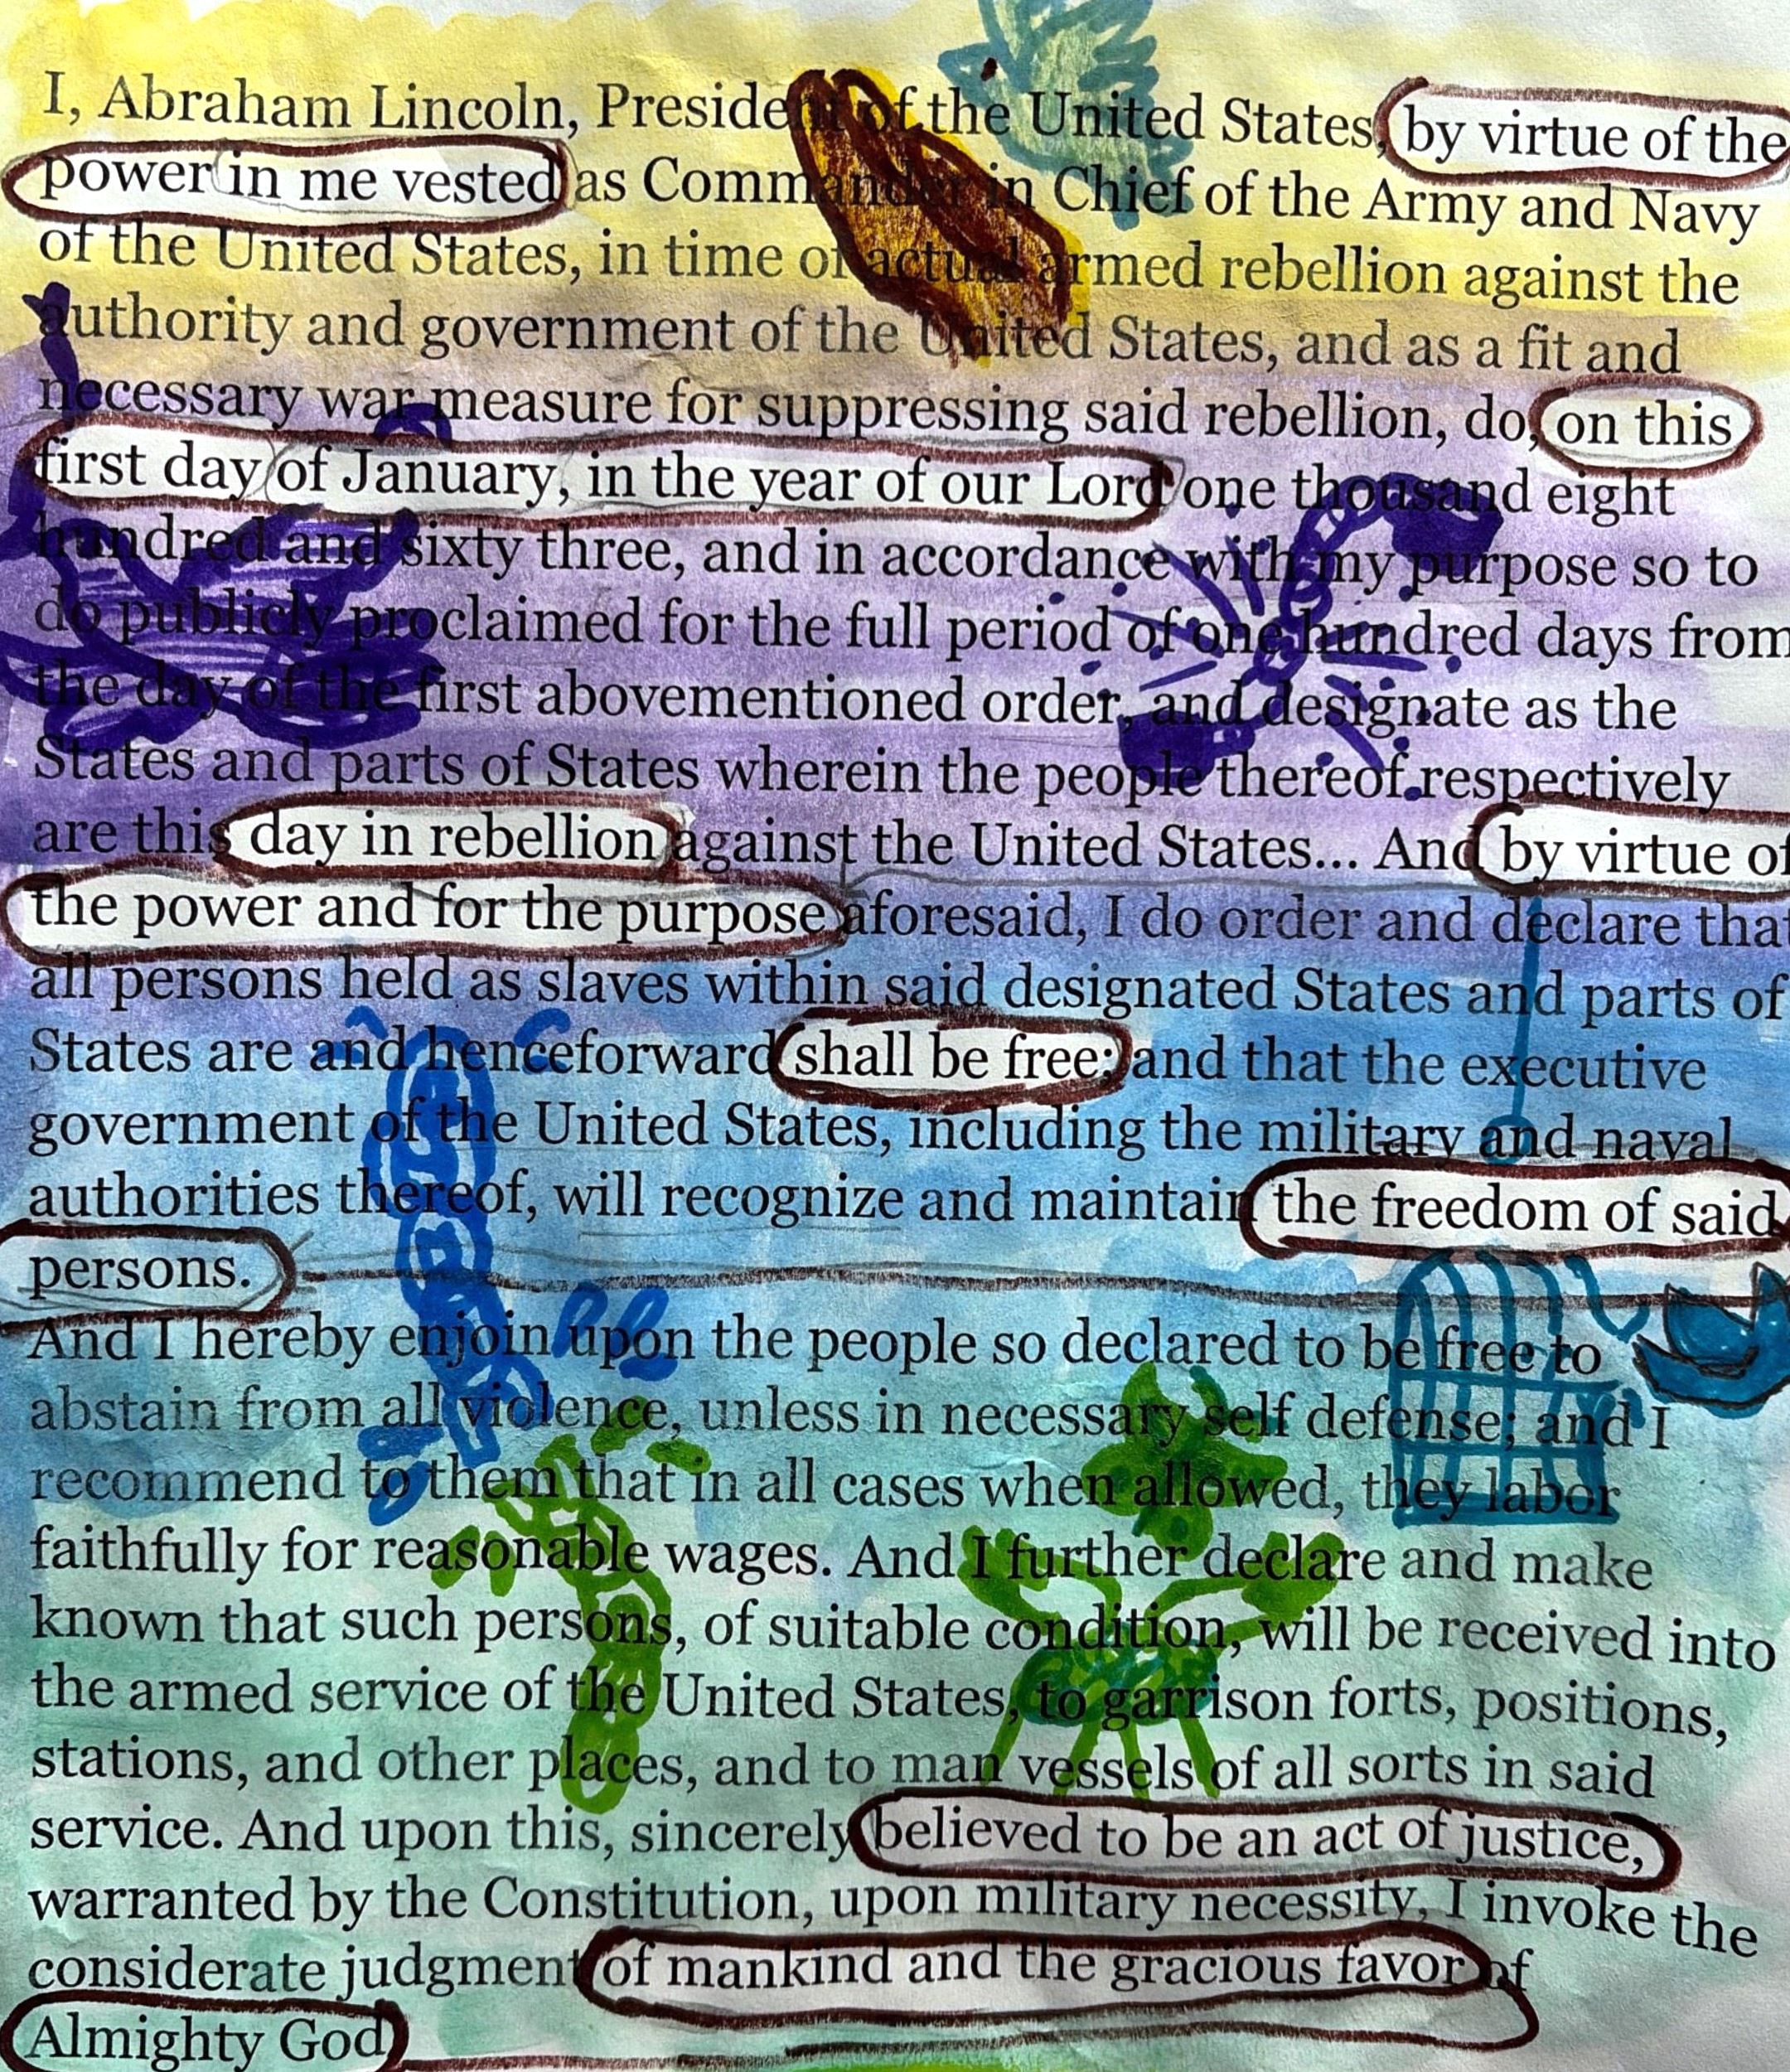 I, Abraham Lincoln, President of the United States, by virtue of the
power in me vested as Commander in Chief of the Army and Navy
of the United States, in time of actual armed rebellion against the
authority and government of the United States, and as a fit and
necessary war measure for suppressing said rebellion, do, on this
first day of January, in the year of our Lord one thousand eight
hundred and sixty three, and in accordance with my purpose so to
do publicly proclaimed for the full period of one hundred days from
the day of the first abovementioned order, and designate as the
States and parts of States wherein the people thereof respectively
are this day in rebellion against the United States... And by virtue of
the power and for the purpose aforesaid, I do order and declare that
all persons held as slaves within said designated States and parts of
States are and henceforward shall be free; and that the executive
government of the United States, including the military and naval
authorities thereof, will recognize and maintain the freedom of said
persons.
And I hereby enjoin upon the people so declared to be free to
abstain from all violence, unless in necessary self defense; and I
recommend to them that in all cases when allowed, they labor
faithfully for reasonable wages. And I further declare and make
known that such persons, of suitable condition, will be received into
the armed service of the United States, to garrison forts, positions,
stations, and other places, and to man vessels of all sorts in said
service. And upon this, sincerely believed to be an act of justice,
warranted by the Constitution, upon military necessity, I invoke the
considerate judgment of mankind and the gracious favor of
Almighty God